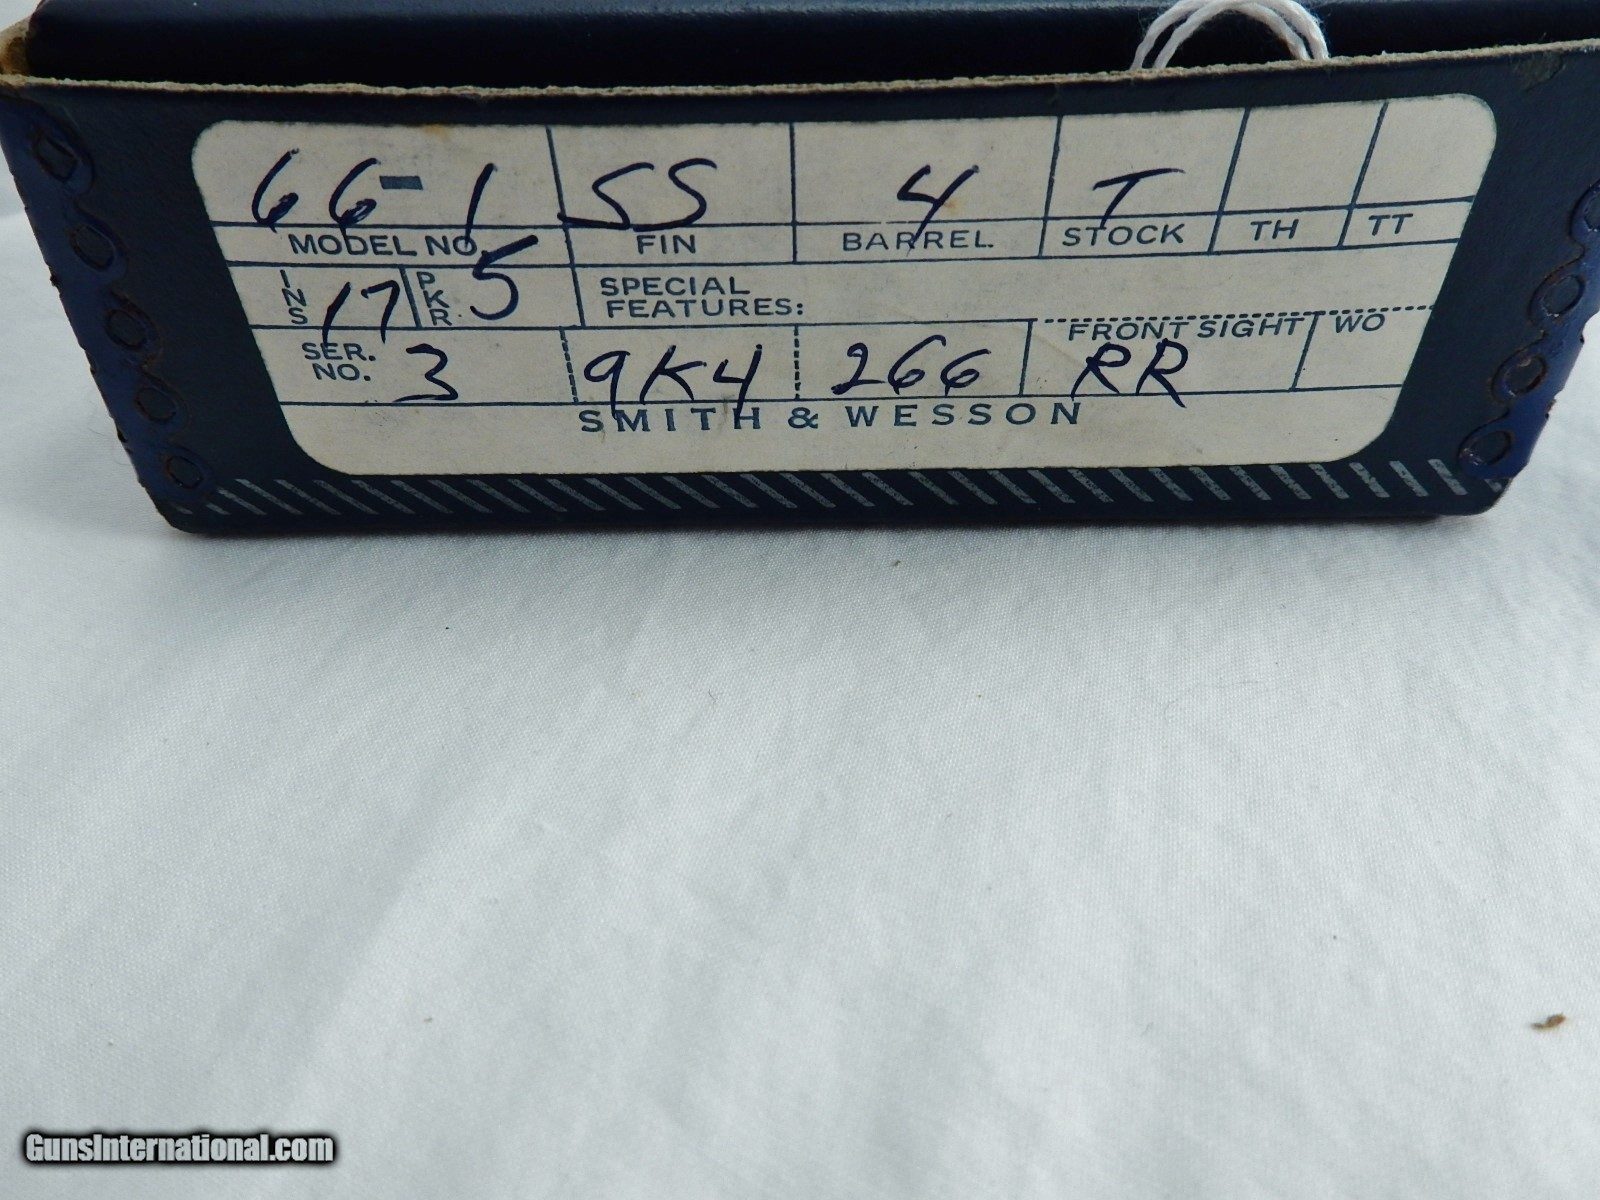 66-1 SS 4 T
MODEL NO. FIN BARREL STOCK TH TT
INS 17 PKR 5 SPECIAL FEATURES:
FRONT SIGHT WO
SER. NO. 3 9K4 266 RR
SMITH & WESSON
GunsInternational.com